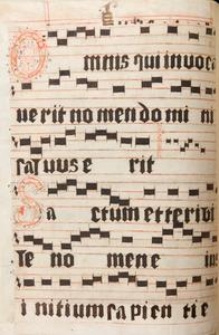 Omnis qui invoca
verit nomen domi ni
saluus e rit
Sa ctum et terribi
le no men e ius
initium sapien tie